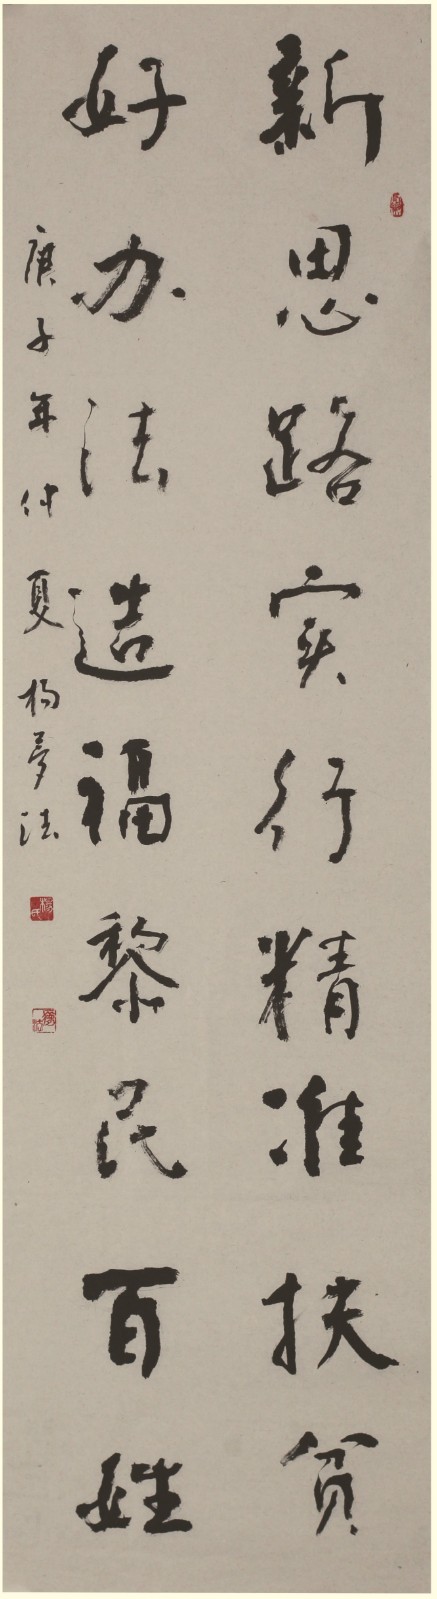 新思路实行精准扶贫
好办法造福黎民百姓
庚子年仲夏杨梦法